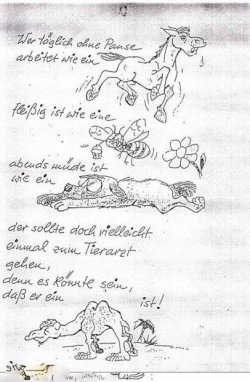 Wer täglich ohne Pause
arbeitet wie ein
fleißig ist wie eine
abends müde ist
wie ein
der sollte doch vielleicht
einmal zum Tierarzt
gehen,
denn es könnte sein,
daß er ein
ist!